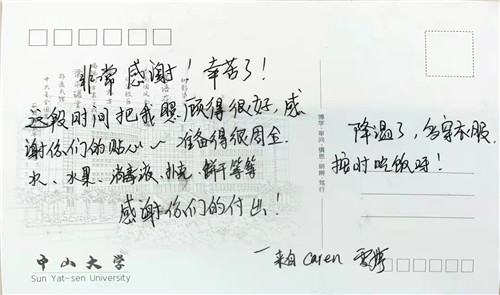 非常感谢！幸苦了！
这段时间把我照顾得很好，感
谢你们的贴心～准备得很周全.
水、水果、消毒液、扑克、饼干等等
感谢你们的付出！
降温了，多穿衣服，
按时吃饭呀！
—来自 Caren
中山大学
Sun Yat-sen University
博学 审问 慎思 明辨 笃行